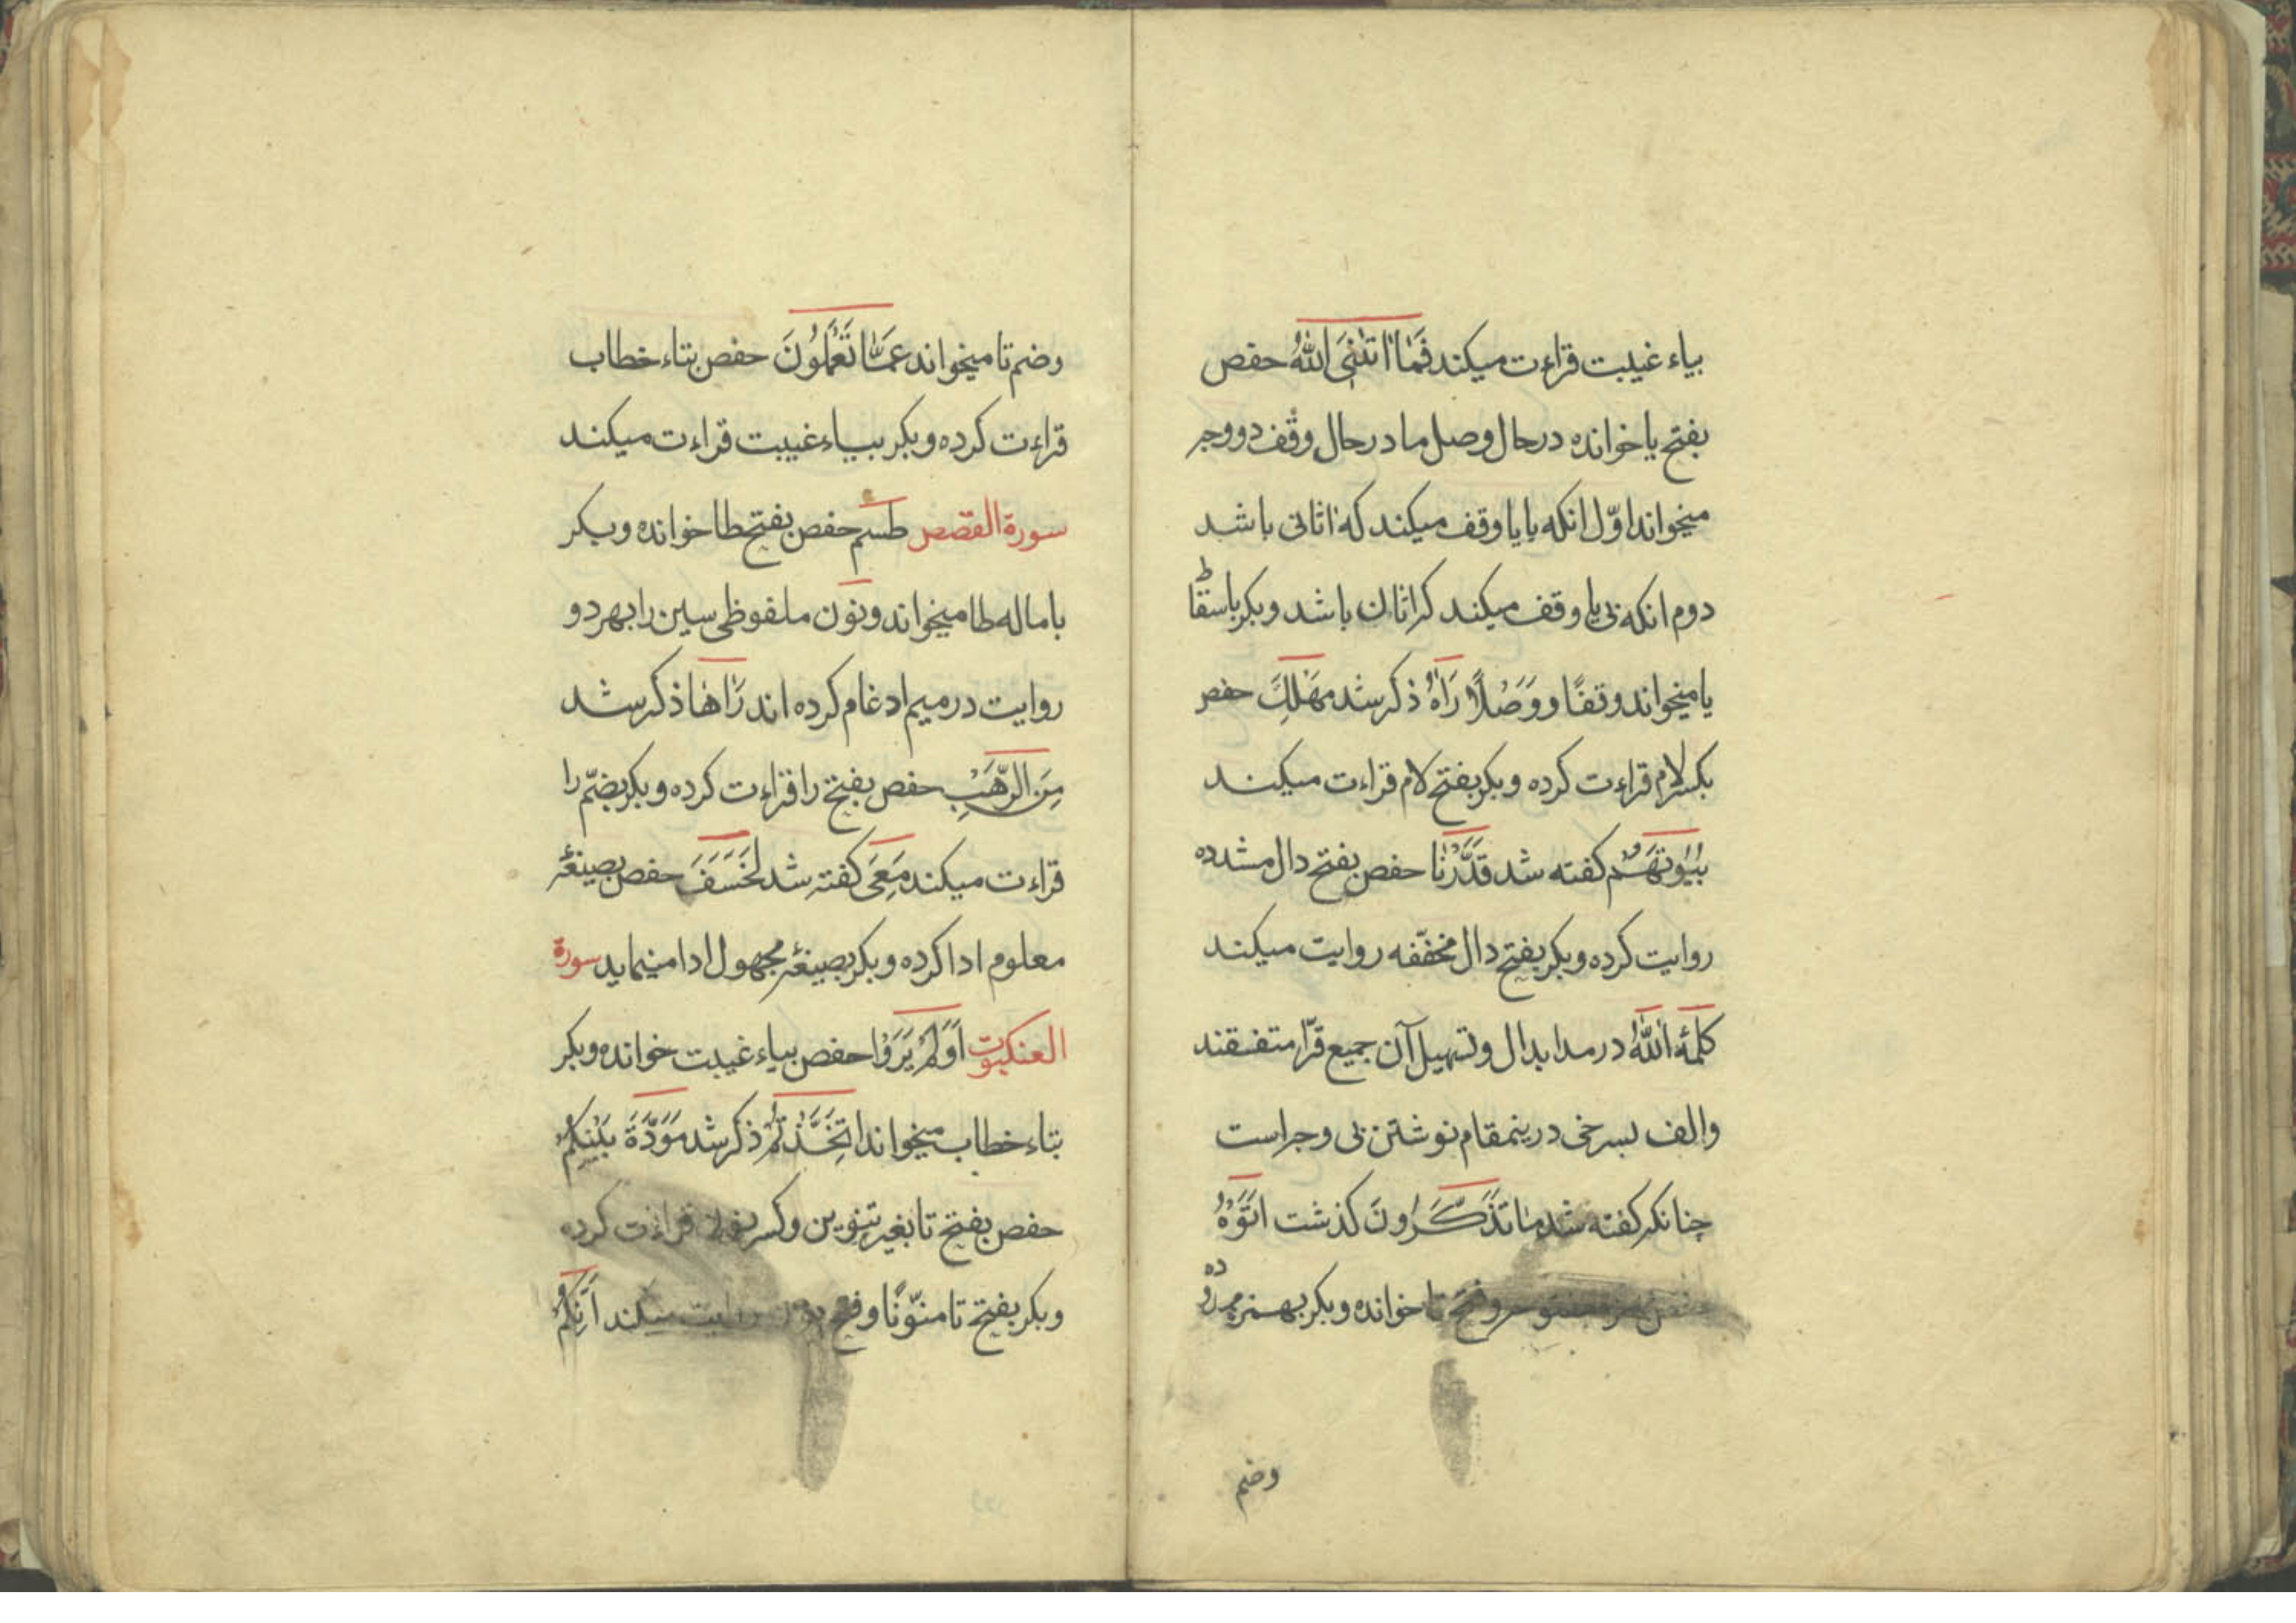 بیاء غیبت قراءت میکند فَمَا اٰتٰنِیَ اللّٰهُ حفص
بفتح یا خوانده در حال وصل اما در حال وقف دو وجه
میخواند اوّل انکه بایا وقف میکند که اتانی باشد
دوم انکه بی یا وقف میکند که اتان باشد وبکر باسقاط
یا میخواند وقفًا ووَصْلًا رَاٰهُ ذکر شد مَهْلِكَ حفص
بکسر لام قراءت کرده وبکر بفتح لام قراءت میکند
بُیُوتَهُمْ کفته شد قَدَّرْنَا حفص بفتح دال مشدده
روایت کرده وبکر بفتح دال مخفّفه روایت میکند
کلمۀ اٰللّٰهُ در مد ابدال وتسهیل آن جمیع قرّا متفقند
والف بسرخی درینمقام نوشتن بی وجه است
چنانکه کفته شد مَا تَذَكَّرُونَ کذشت اَتَوْهُ
حفص بهمزه مفتوحه وفتح تا خوانده وبکر بهمزه ممدوده
وضم
وضم تا میخواند عَمَّا تَعْمَلُونَ حفص بتاء خطاب
قراءت کرده وبکر بیاء غیبت قراءت میکند
سورة القصص طسم حفص بفتح طا خوانده وبکر
باماله طا میخواند ونون ملفوظی سین را بهر دو
روایت در میم ادغام کرده اند رَاٰهَا ذکر شد
مِنَ الرَّهْبِ حفص بفتح را قراءت کرده وبکر بضمّ را
قراءت میکند مَعِیَ کفته شد لَخَسَفَ حفص بصیغۀ
معلوم ادا کرده وبکر بصیغۀ مجهول ادا مینماید سورة
العنکبوت اَوَلَمْ یَرَوْا حفص بیاء غیبت خوانده وبکر
بتاء خطاب میخواند اتَّخَذْتُمْ ذکر شد مَوَدَّةَ بَیْنِكُمْ
حفص بفتح تا بغیر تنوین وکسر نون قراءت کرده
وبکر بفتح تا منوّنًا وفتح نون روایت میکند اَئِنَّكُمْ